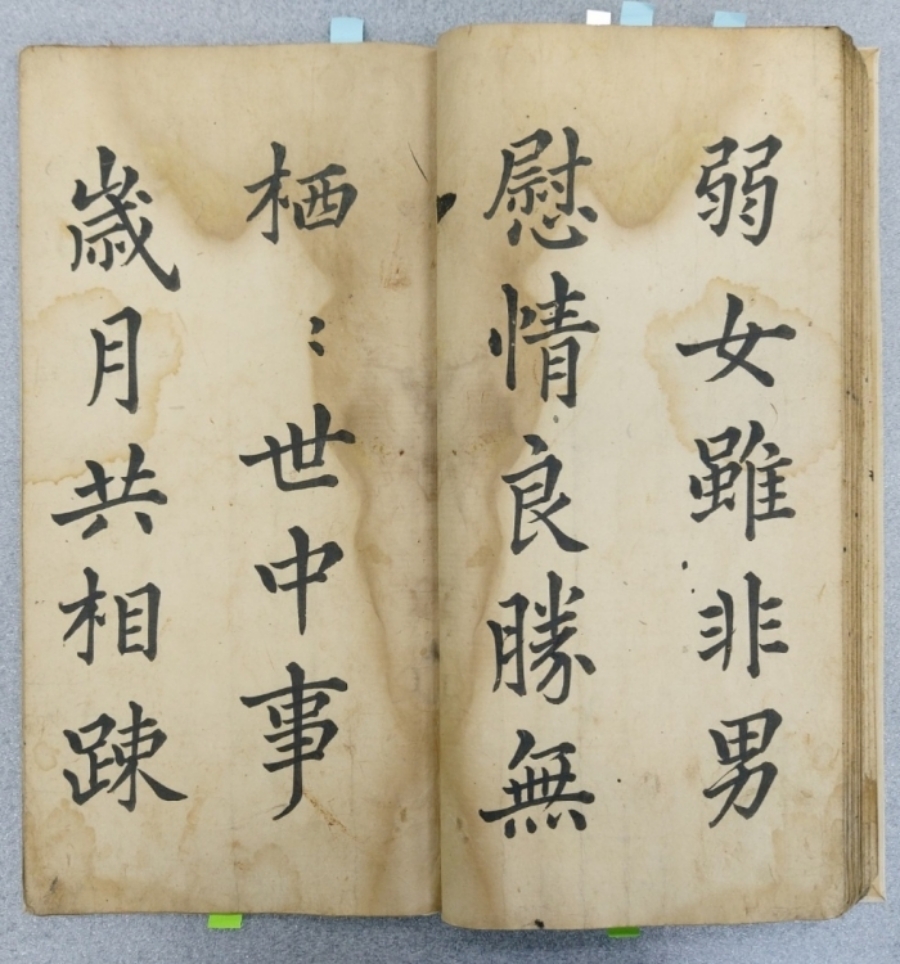 弱女雖非男
慰情良勝無
栖〻世中事
歳月共相踈